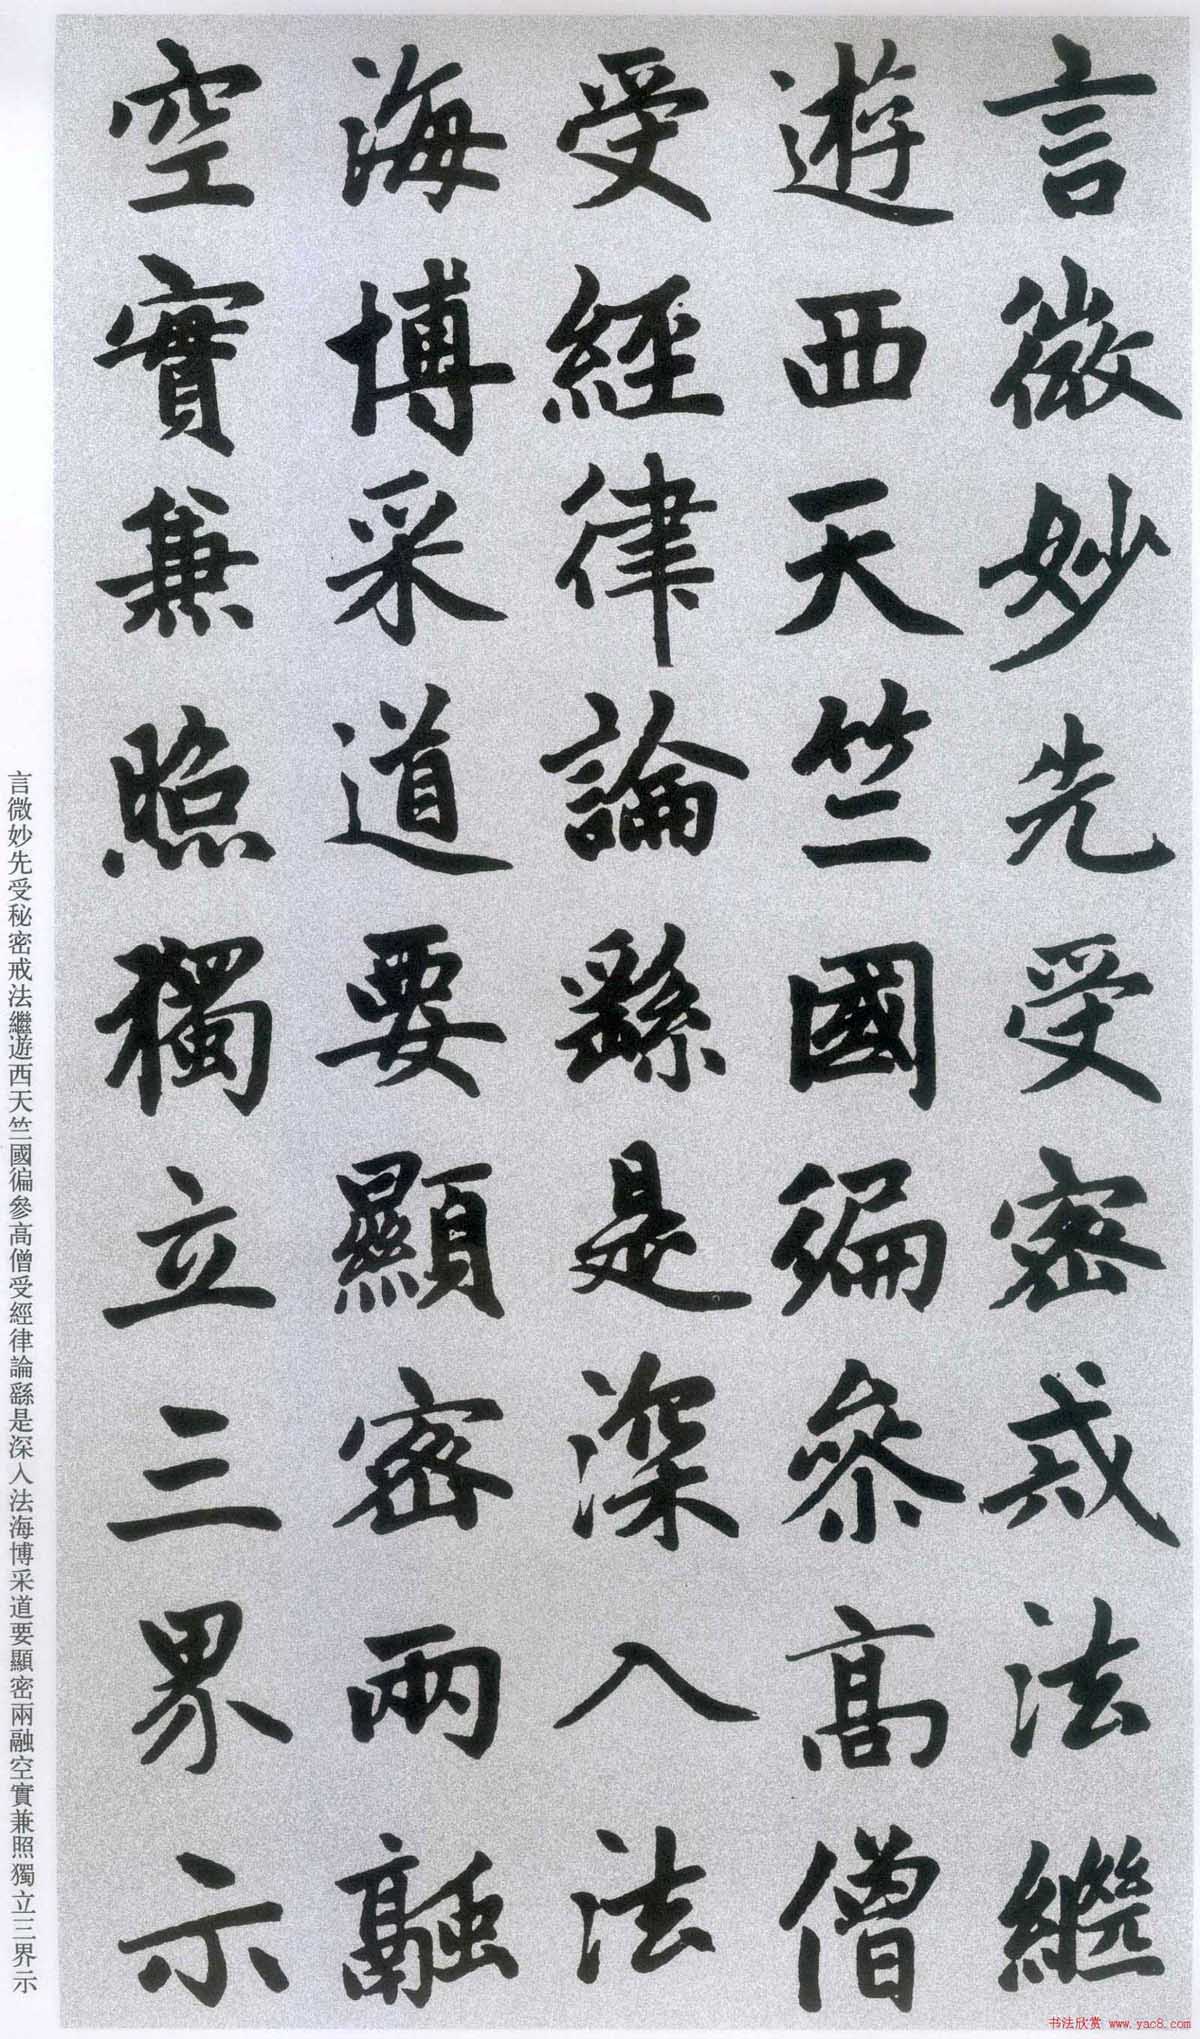 言微妙先受密戒法繼
遊西天竺國徧參高僧
受經律論繇是深入法
海博采道要顯密兩融
空實兼照獨立三界示
言微妙先受秘密戒法繼遊西天竺國徧參高僧受經律論繇是深入法海博采道要顯密兩融空實兼照獨立三界示
书法欣赏 www.yac8.com